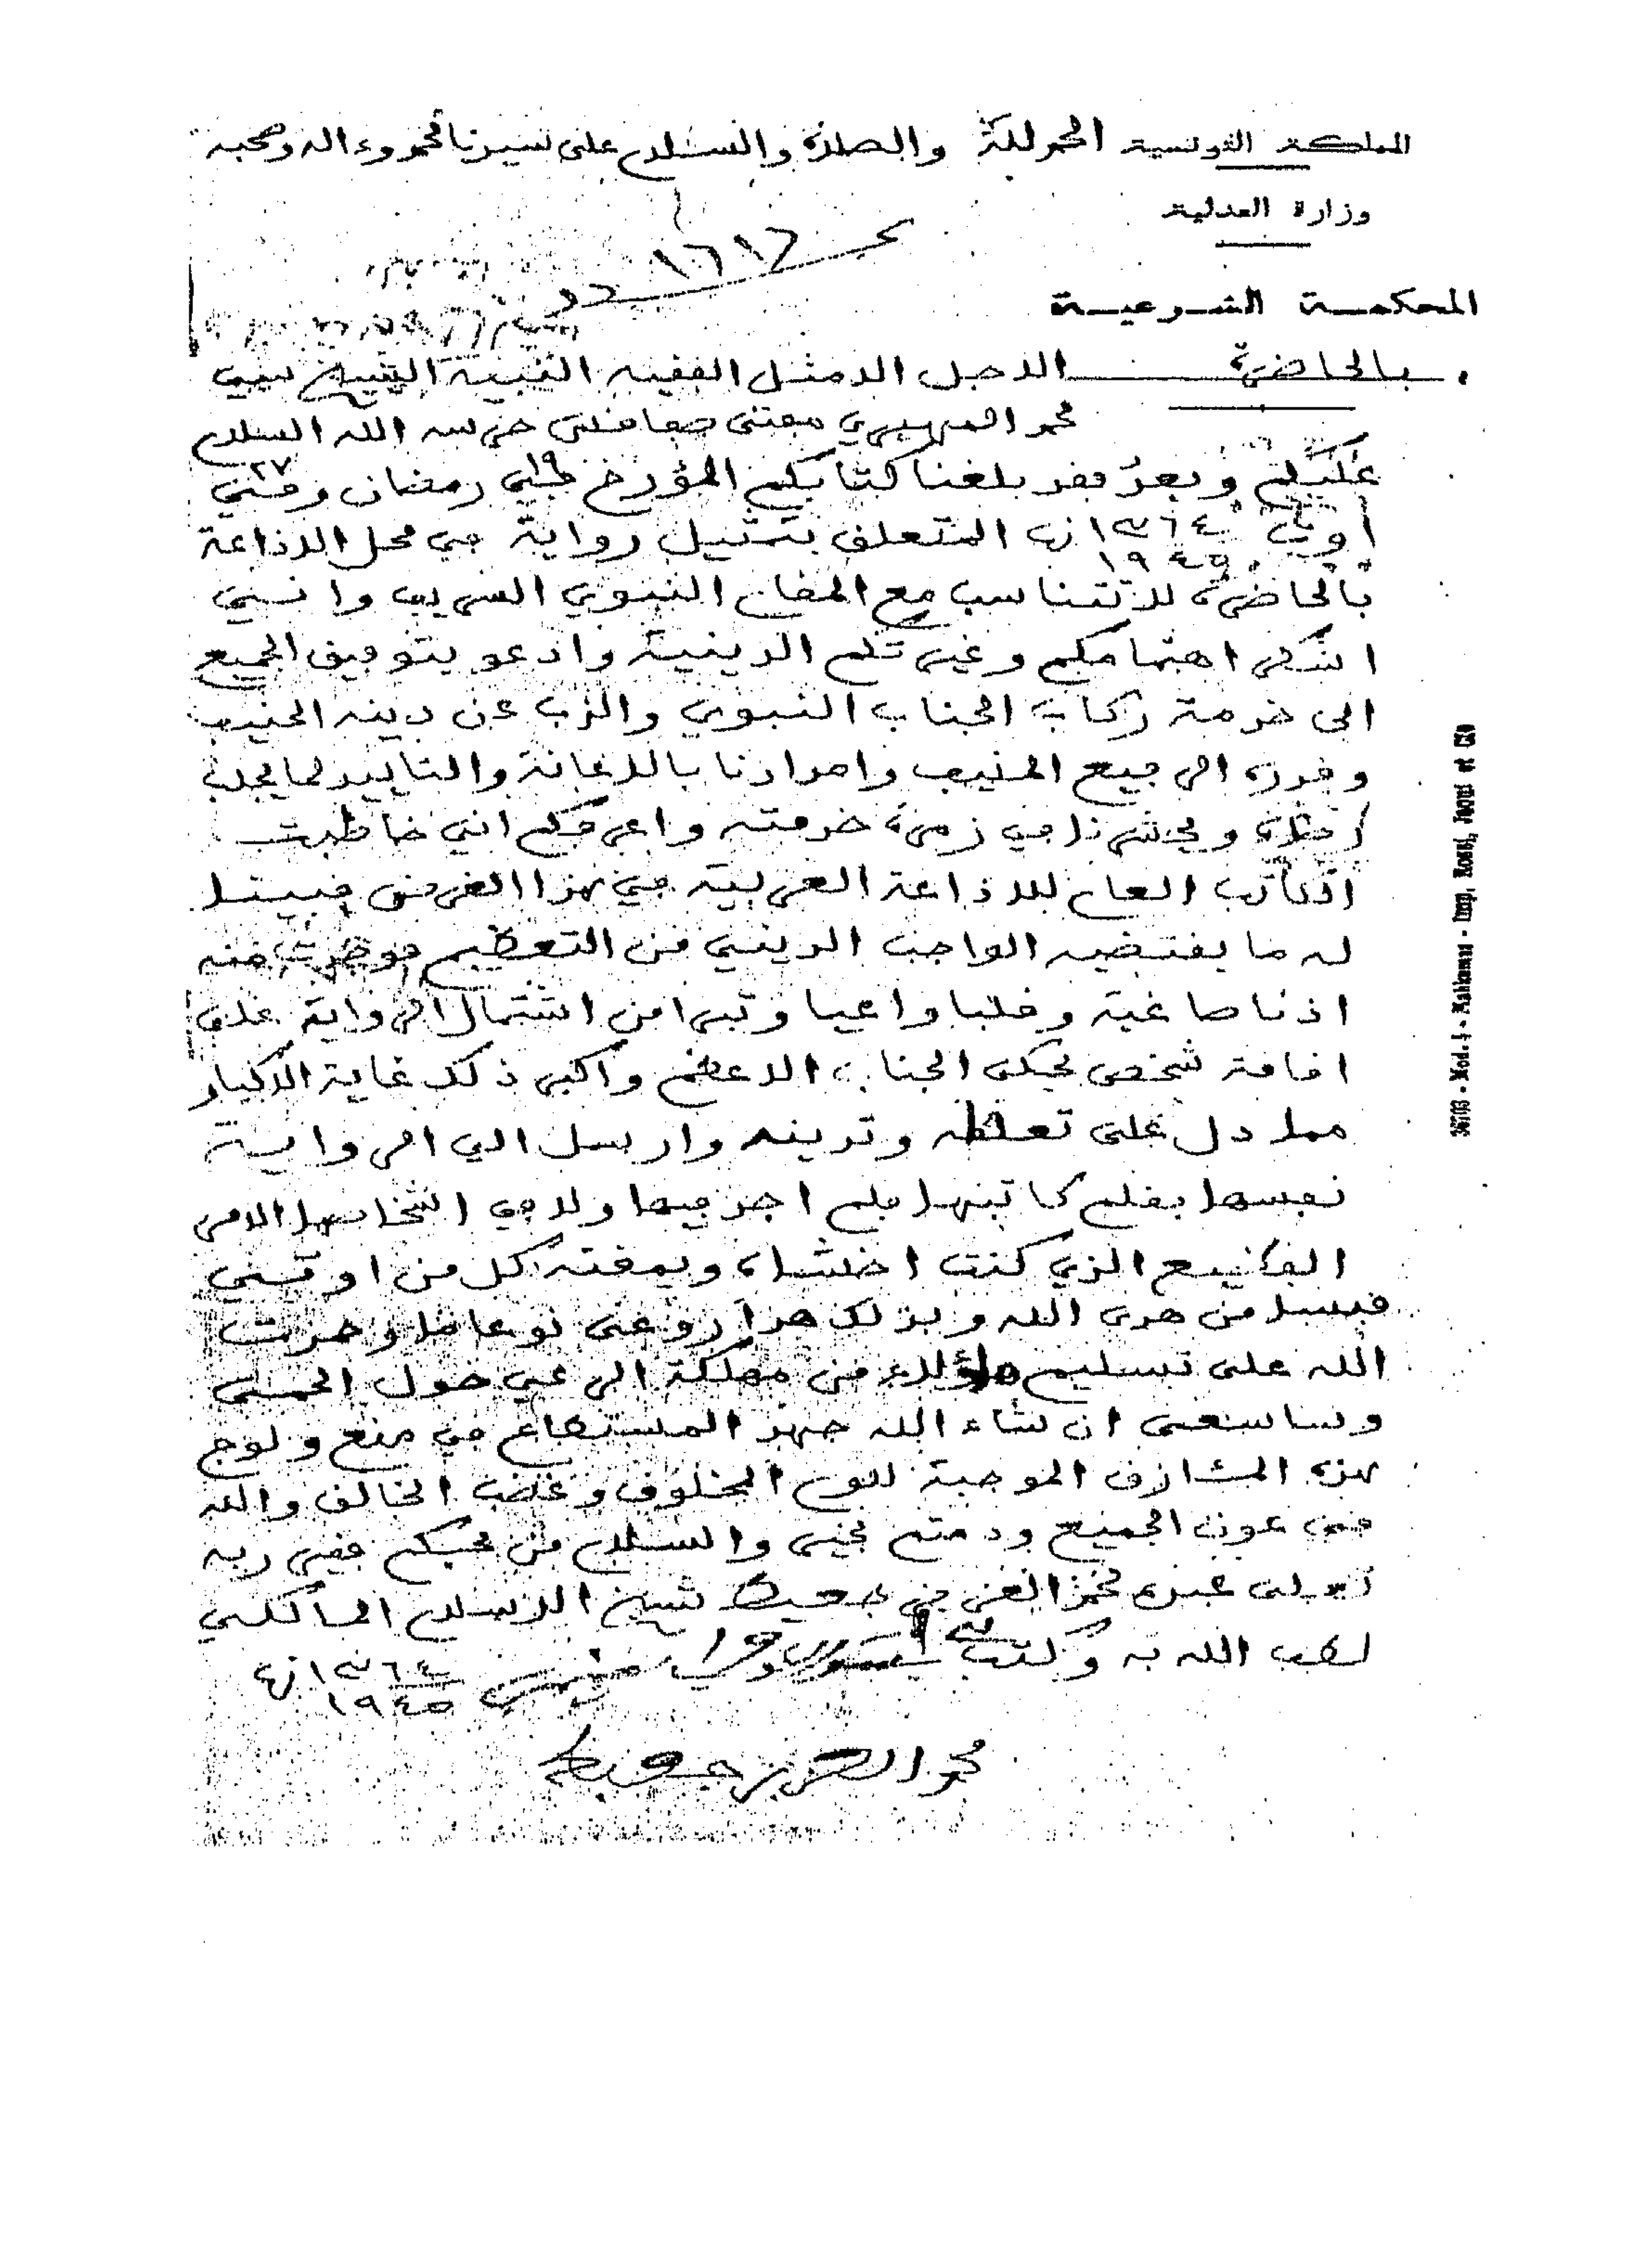 المملكة التونسية الحمد لله والصلاة والسلام على سيدنا محمد وءاله وصحبه
وزارة العدلية
١٦١٧
عدد
المحكمة الشرعية
بالحاضرة الاجل الامثل الفقيه النبيه الشيخ سيدي
محمد المهيري مفتي صفاقس حرسه الله السلام
عليكم وبعد فقد بلغنا كتابكم المؤرخ في ١٩ رمضان وفي ٢٧
أوت ١٣٦٤ ١٩٤٥ المتعلق بتمثيل رواية في محل الاذاعة
بالحاضرة لا تتناسب مع المقام النبوي الشريف وانني
اشكر اهتمامكم وغيرتكم الدينية وادعو بتوفيق الجميع
الى خدمة ركاب الجناب النبوي والذب عن دينه الحنيف
وقدره الرفيع المنيف وامدادنا بالاعانة والتاييد لما يجلب
رضاه ويحشرنا في زمرة خدمته واعرفكم انني خاطبت
الكاتب العام للاذاعة العربية في هذا الغرض فبينت
له ما يقتضيه الواجب الديني من التعظيم فوجدت منه
اذنا صاغية وقلبا واعيا وتبرا من اشتمال الرواية على
اقامة شخص يحكي الجناب الاعظم واكبر ذلك غاية الاكبار
مما دل على تعلقه وتدينه وارسل الي الرواية
نفسها بقلم كاتبها فلم اجد فيها ولا في اشخاصها الامر
الفظيع الذي كنت اخشاه ويمقته كل من اوتي
قبسا من هدى الله وبذلك هدأ روعي نوعا ما وحمدت
الله على تسليم هؤلاء من مهلكة الرعي حول الحمى
وساسعى ان شاء الله جهد المستطاع في منع ولوج
هذه المئازق الموجبة للوم المخلوق وغضب الخالق والله
في عون الجميع ودمتم بخير والسلام من محبكم فقير ربه
تعلى عبده محمد العزيز جعيط شيخ الاسلام المالكي
لطف الله به وكتب في ١٣٦٤ ١٩٤٥
محمد العزيز جعيط
36703 - Mod. 4 - Mahkama - Imp.